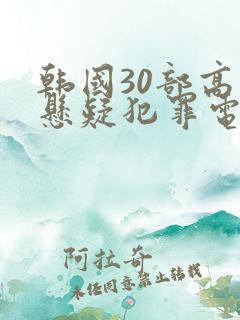 韩國30部高
懸疑犯罪電
阿拉奇
未经同意禁止转载